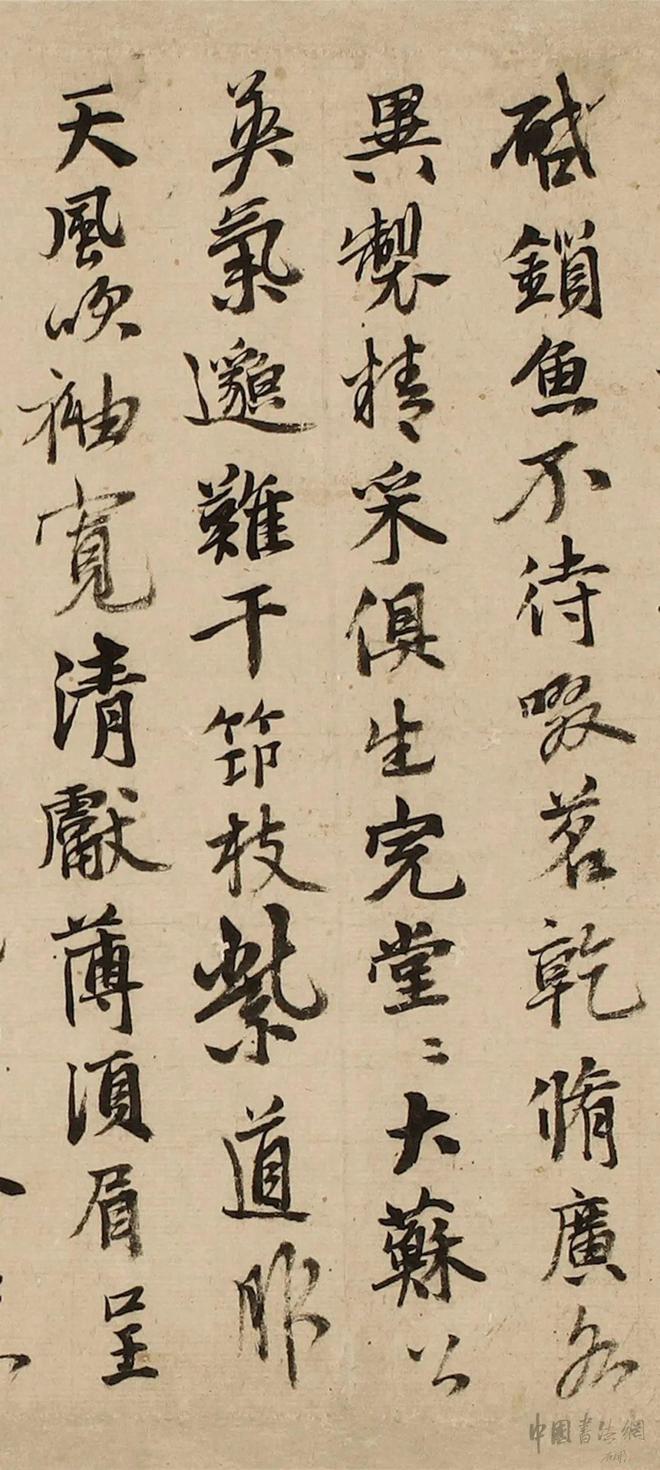 啟鎖魚不待啜茗乾脩廣各
異製精采俱生完堂〻大蘇公
英氣邈難干筇枝紫道服
天風吹袖寬清獻薄須眉呈
中國書法網